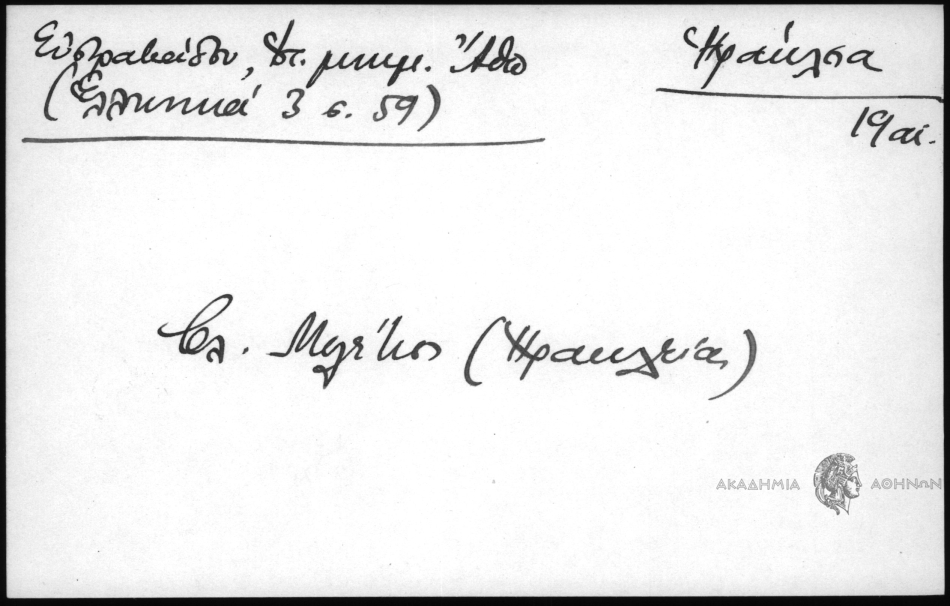 Εὐστρατιάδου, Ἱστ. μνημ. Ἄθω
(Ἑλληνικά 3 σ. 59)
Ἡράκλεια
19 αἰ.
Βλ. Μελέτιος (Ἡρακλείας)
ΑΚΑΔΗΜΙΑ ΑΘΗΝΩΝ